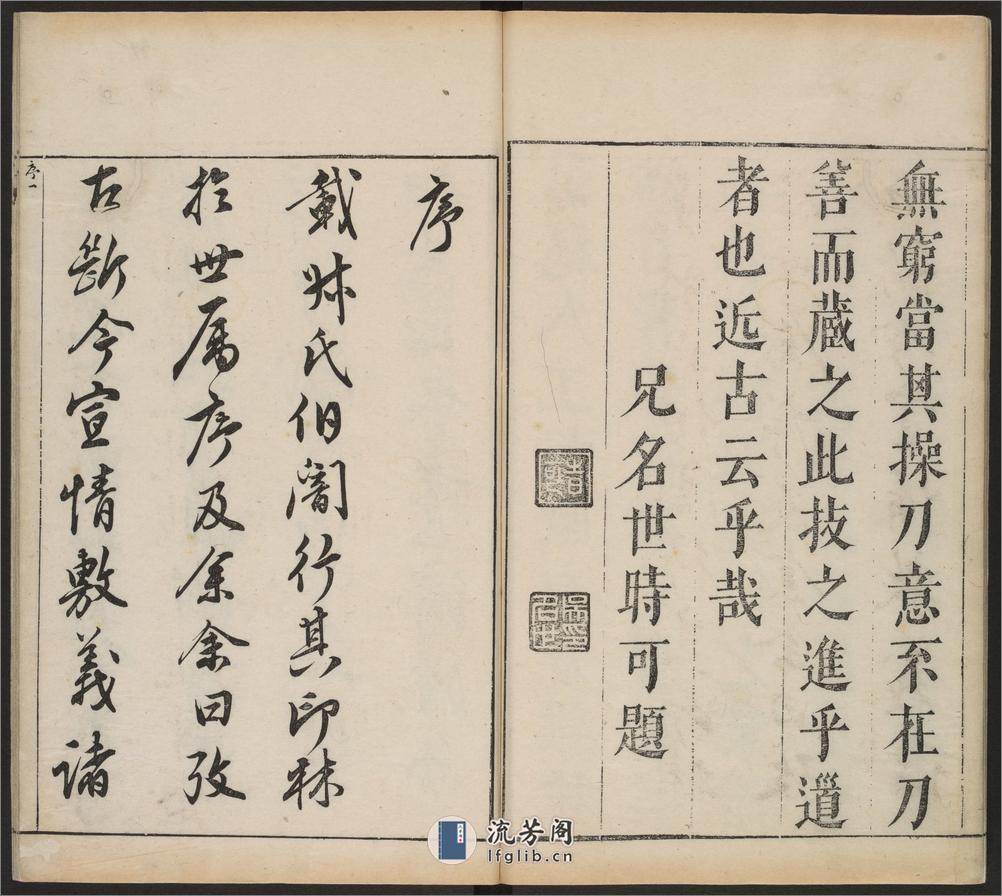 無窮當其操刀意不在刀
善而藏之此技之進乎道
者也近古云乎哉
兄名世時可題
序
戴林氏伯闇行其印林
於世屬序及余余曰攷
古斷今宣情敷義諸
序一
流芳阁
lfglib.cn